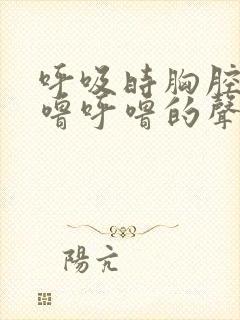 呼吸時胸腔
嚕呼嚕的聲
陽亢